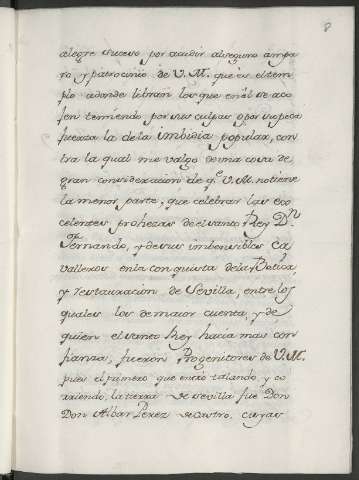 8
alegre suceso por acudir al seguro ampa
ro, y patrocinio de V. M. que es el tem
plo adonde libran los que en èl se aco
jen temiendo por sus culpas, o por su poca
fuerza la de la imbidia popular, con
tra la qual me valgo de una cosa de
gran consideracion de q.e V. M. no tiene
la menor parte, que celebrar las eco
celentes prohezas de el santo Rey D.n
Fernando, y de sus imbensibles Ca
valleros en la conquista de la Betica,
y restauracion de Sevilla, entre los
quales los de maior cuenta, y de
quien el santo Rey hacia mas con
fianza, fueron Progenitores de V. M.
pues el primero que entrò talando, y co
rriendo, la tierra de Sevilla fue Don
Don Albar Perez de Castro, cuyas